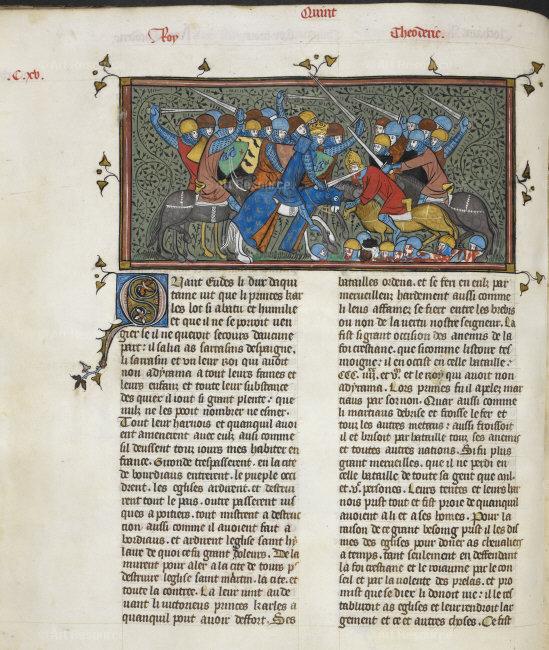 Quint
Roy
Theoderic.
.C.xv.
Quant Eudes li dux daqui
taine vit que li princes kar
les lot si abatu et humilie
et que il ne se pooit ven
gier se il ne queroit secours daucune
part: il salia as sarrasins despaigne.
li sarrasin et un leur roy qui auoit
non adyrama a tout leurs fames et
leurs enfanz et toute leur substance
des quiex il iout si grant plente: que
nulz ne les pooit nombrer ne esmer.
Tout leur harnois et quanquil auoi
ent amenerent auec eulz aussi comme
sil deussent touz iours mes habiter en
france. Gironde trespasserent. en la cite
de bourdiaus entrerent. le pueple occi
drent. les eglises ardirent. et destrui
rent tout le pais. outre passerent ius
ques a poitiers. tout mistrent a destruc
tion. aussi comme il auoient fait a
bordiaus. et ardirent leglise saint hy
laire de quoi ce fu grant doleurs. De la
murent pour aler a la cite de tours pour
destruire leglise saint martin. la cite. et
toute la contree. La leur vint au de
uant li victorieus princes karles a
quanquil pout auoir deffort. Ses
batailles ordena. et se feri en eulz par
merueilleuz hardement aussi comme
li leus affamez se fiert entre les brebis
ou non de la vertu nostre seigneur. La
fist si grant occision des anemis de la
foi crestiane. que si comme listoire tes
moigne: il en occist en celle bataille:
et le roy qui auoit non
adyrama. Lors primes fu il apelez mar
tiaus par sornon. Quar aussi comme
li martiaus debrise et froisse le fer et
touz les autres metaus: aussi froissoit
il et brisoit par bataille touz ses anemis
et toutes autres nations. Si fu plus
grant merueilles. que il ne perdi en
celle bataille de toute sa gent que mil.
et persones. Leurs tentes et leurs har
nois prist tout et fist proie de quanquil
auoient a li et a ses homes. Pour la
raison de ce grant besoing prist il les dis
mes des eglises pour doner as cheualiers
a temps. tant seulement en deffendant
la foi crestiane et le roiaume par le con
seil et par la volente des prelas. et pro
mist que se diex li donoit vie: il les res
tabliroit as eglises et leur rendroit lar
gement et ce et autres choses. Ce fist